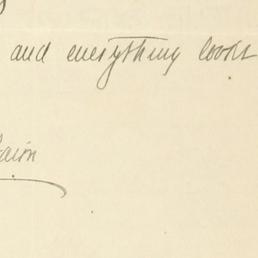 and everything looks